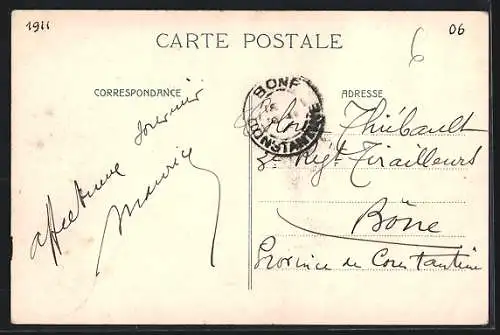 1911
06
6
CARTE POSTALE
CORRESPONDANCE
ADRESSE
BONE
CONSTANTINE
affectueux souvenir
Maurice
Colonel Thiébault
3e Regt Tirailleurs
Bône
Province de Constantine